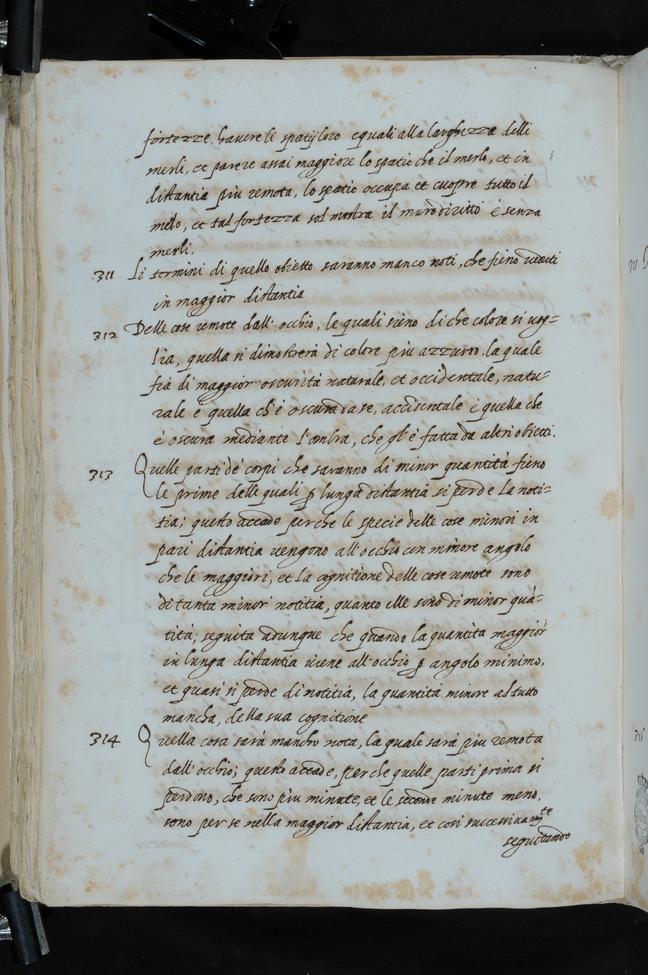 fortezze. havere li spatij loro equali alla larghezza delli
merli, et parere assai maggiore lo spatio che il merlo, et in
distantia piu remota, lo spatio occupa et cuopre tutto il
mello, et tal fortezza sol mostra il muro diritto é senza
merli.
311 Li termini di quello obietto saranno manco noti, che fieno veduti
in maggior distantia
312 Delle cose remote dall' occhio, le quali sieno di che colore si vog=
lia, quella si dimostrerà di colore più azzurro, la quale
fia di maggior oscurità naturale, et occidentale, natu=
rale é quella ch'é oscura da se, accidentale é quella che
é oscura mediante l'ombra, che gl'é fatta da altri obietti.
313 Quelle parti de corpi che saranno di minor quantità fieno
le prime delle quali p lunga distantia si perde la noti=
tia; questo accade perche le specie delle cose minori in
pari distantia vengono all' occhio con minore angolo
che le maggiori, et la cognitione delle cose remote sono
di tanta minor notitia, quanto elle sono di minor quā=
tità; seguita adunque che quando la quantità maggior
in lunga distantia viene all' occhio p angolo minimo,
et quasi si perde di notitia, la quantità minore al tutto
mancha, della sua cognitione
314 Quella cosa sarà mancho nota, la quale sarà piu remota
dall' occhio; questo accade, perche quelle parti prima si
perdono, che sono più minute, et le seconde minute meno,
sono perse nella maggior distantia, et cosi successivamte
seguitando